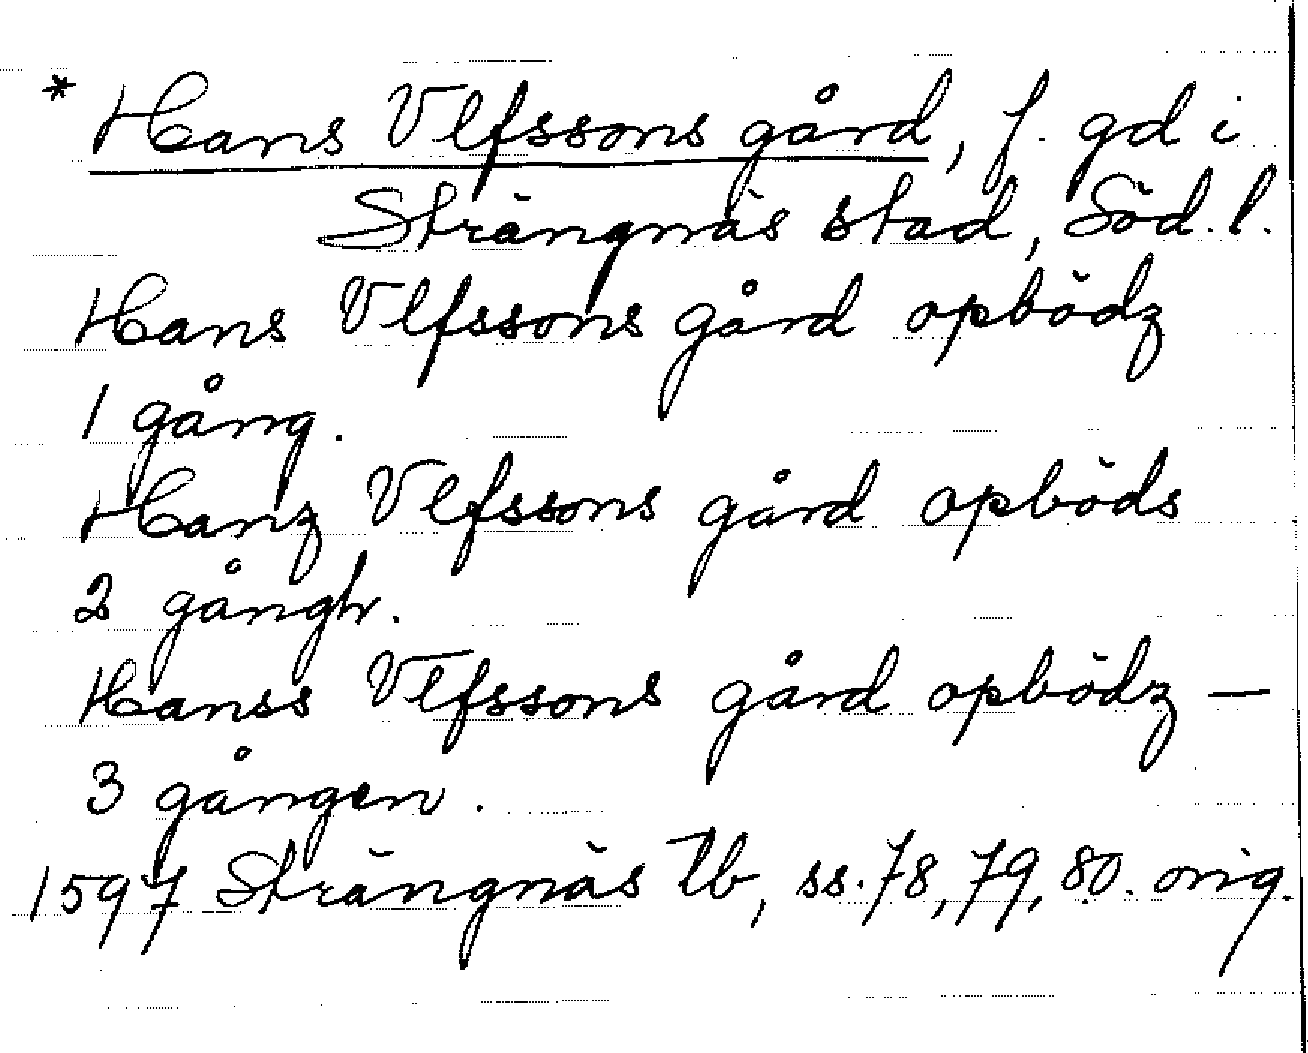 * Hans Vlfssons gård, f. gd i
Strängnäs stad, Söd. l.
Hans Vlfssons gård opbödz
1 gång.
Hanz Vlfssons gård opböds
2 gångh.
Hanss Vlfssons gård opbödz —
3 gången.
1597 Strängnäs tb, ss. 78, 79, 80. orig.